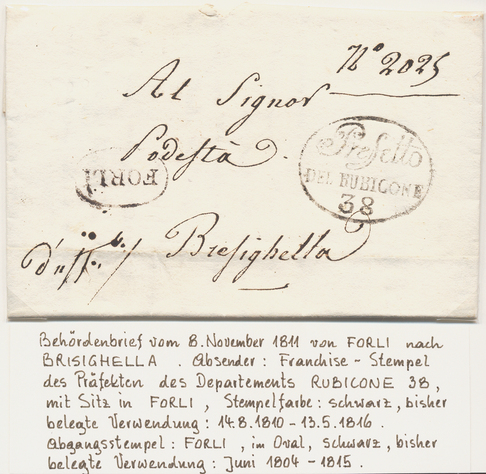 N.º 2025
Al Signor
Podestà
FORLI
Prefetto
DEL RUBICONE
38
Bresighella
Behördenbrief vom 8. November 1811 von FORLI nach
BRISIGHELLA . Absender : Franchise - Stempel
des Präfekten des Departements RUBICONE 38,
mit Sitz in FORLI , Stempelfarbe : schwarz, bisher
belegte Verwendung : 14.8.1810 - 13.5.1816 .
Abgangsstempel : FORLI , im Oval, schwarz, bisher
belegte Verwendung : Juni 1804 - 1815 .